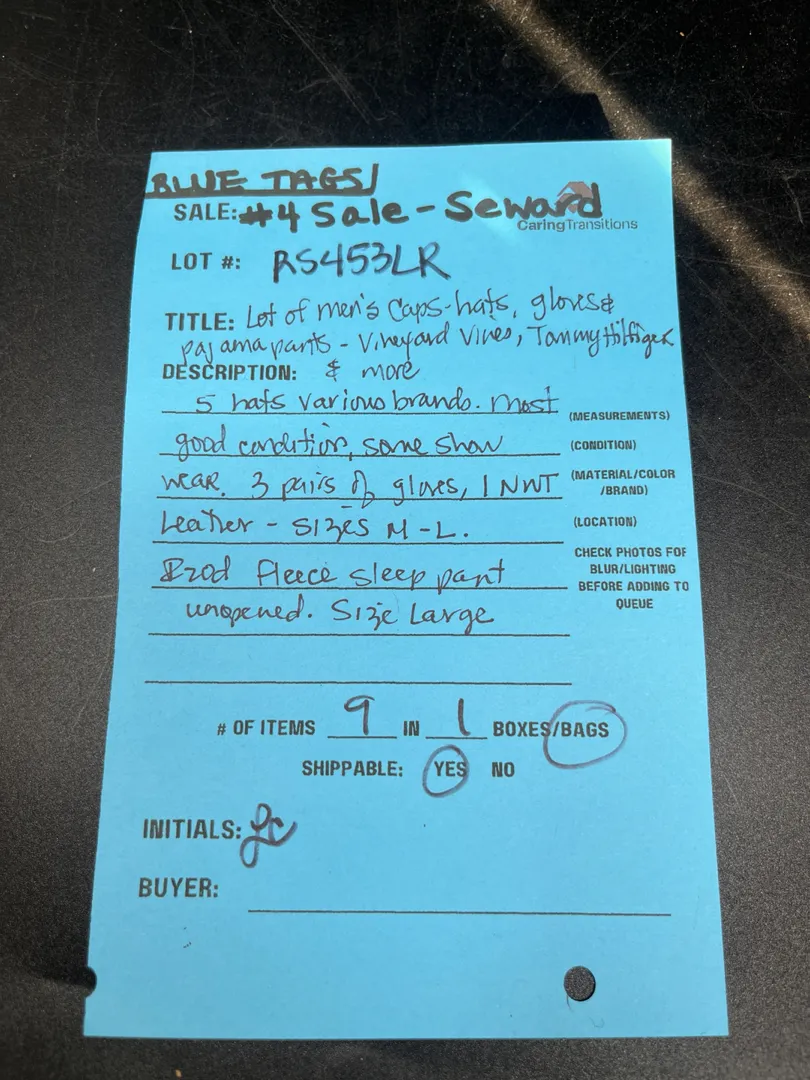 BLUE TAGS/
SALE: #4 Sale - Seward
CaringTransitions
LOT #: RS453LR
TITLE: Lot of men's Caps-hats, gloves &
pajama pants - Vineyard Vines, Tommy Hilfiger
DESCRIPTION: & more
5 hats various brands. Most
(MEASUREMENTS)
good condition, some show
(CONDITION)
wear. 3 pairs of gloves, 1 NWT
(MATERIAL/COLOR
/BRAND)
Leather - sizes M-L.
(LOCATION)
Izod Fleece sleep pant
CHECK PHOTOS FOR
BLUR/LIGHTING
BEFORE ADDING TO
QUEUE
unopened. Size Large
# OF ITEMS 9 IN 1 BOXES/BAGS
SHIPPABLE: YES NO
INITIALS: LC
BUYER: